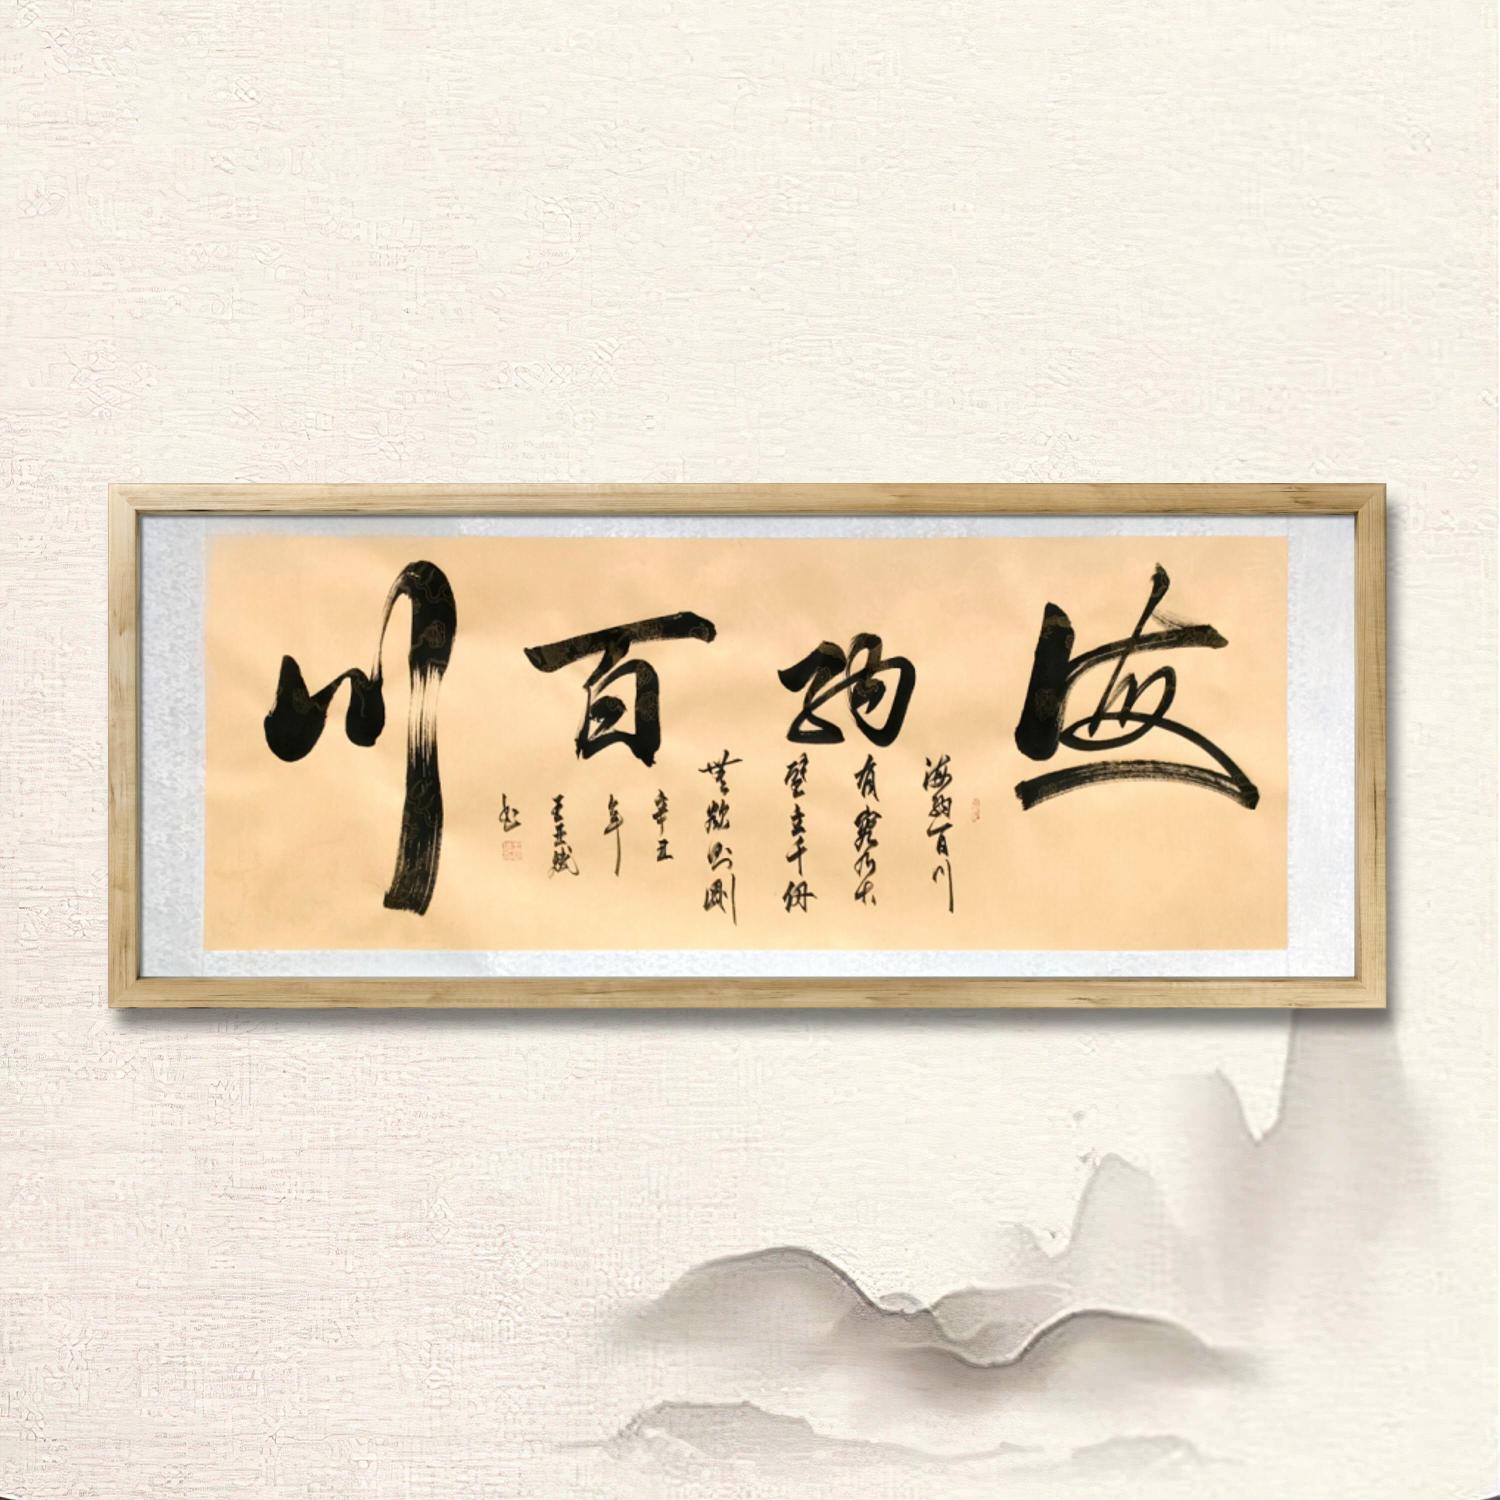 海纳百川
海纳百川
有容乃大
壁立千仞
無欲则刚
辛丑
年
王玉斌
书